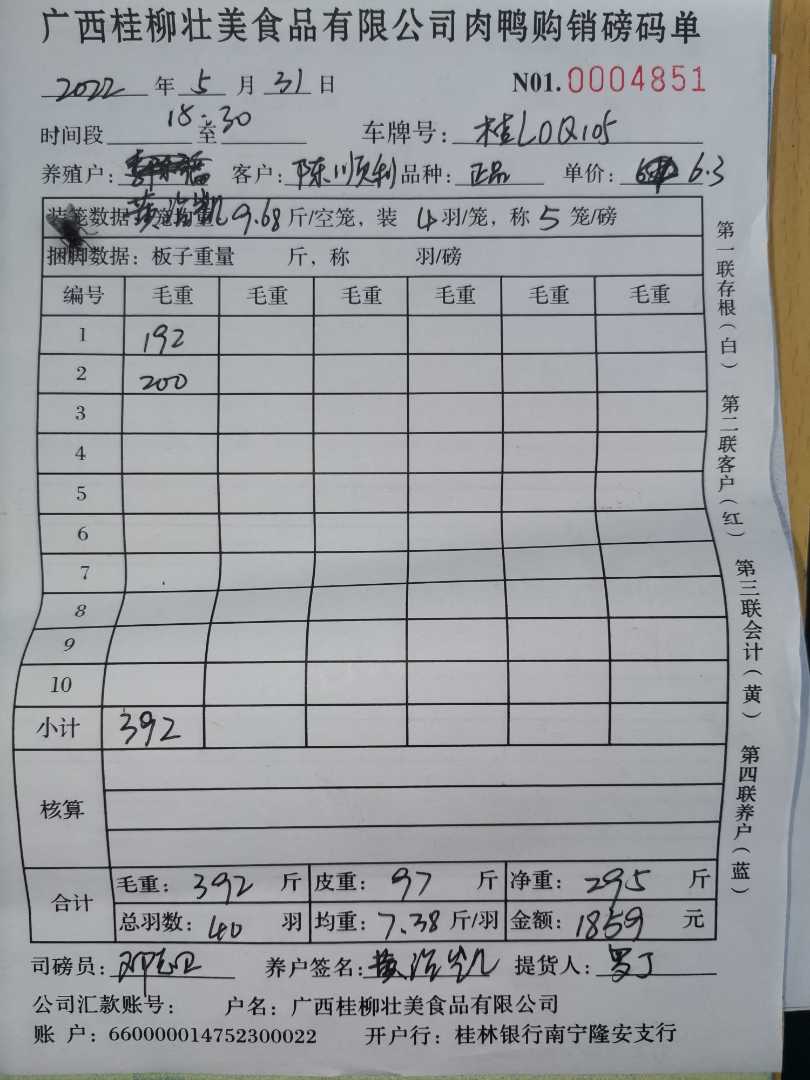 广西桂柳壮美食品有限公司肉鸭购销磅码单
2022 年 5 月 31 日 N01. 0004851
时间段 18:30 至 车牌号: 桂L0Q105
养殖户: 客户: 陈顺利 品种: 正品 单价: 6.3
黄治凯
装笼数据 笼均重 9.68 斤/空笼, 装 4 羽/笼, 称 5 笼/磅
捆脚数据: 板子重量 斤, 称 羽/磅
编号 毛重 毛重 毛重 毛重 毛重 毛重
1 192
2 200
3
4
5
6
7
8
9
10
小计 392
核算
合计 毛重: 392 斤 皮重: 97 斤 净重: 295 斤
总羽数: 40 羽 均重: 7.38 斤/羽 金额: 1859 元
司磅员: 养户签名: 黄治凯 提货人:
公司汇款账号: 户名: 广西桂柳壮美食品有限公司
账 户: 660000014752300022 开户行: 桂林银行南宁隆安支行
第一联存根(白) 第二联客户(红) 第三联会计(黄) 第四联养户(蓝)